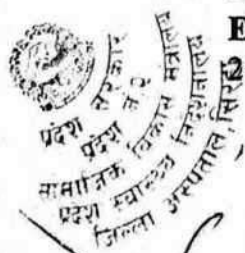 प्रदेश सरकार
प्रदेश नं. २
सामाजिक विकास मन्त्रालय
प्रदेश स्वास्थ्य निर्देशनालय
जिल्ला अस्पताल, सिरहा
E
2